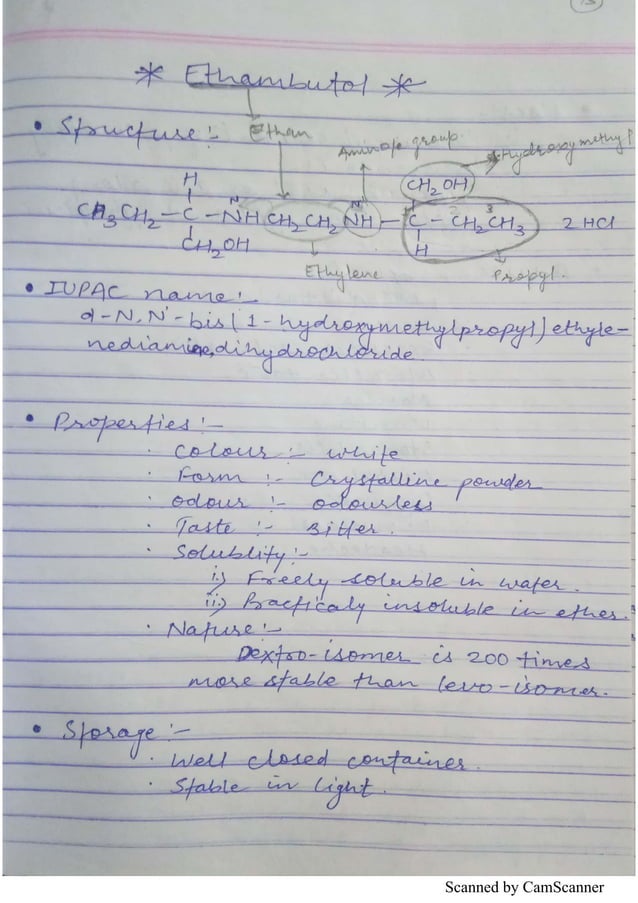 13
* Ethambutol *
• Structure :- Ethan
Aminope group.
Hydroxymethyl
CH2OH
H
N N' 1 2 3
CH3CH2 – C – NH CH2CH2 NH – C – CH2CH3 2 HCl
CH2OH H
Ethylene Propyl.
• IUPAC name :-
d-N,N'-bis(1-hydroxymethylpropyl)ethyle-
nediamine,dihydrochloride.
• Properties :-
· Colour :- white
· Form :- Crystalline powder
· odour :- odourless
· Taste :- Bitter.
· Solublity :-
i.) Freely soluble in water.
ii.) Practicaly insoluble in ether.
· Nature :-
Dextro-isomer is 200 times
more stable than levo-isomer.
• Storage :-
· Well closed container.
· Stable in light.
Scanned by CamScanner